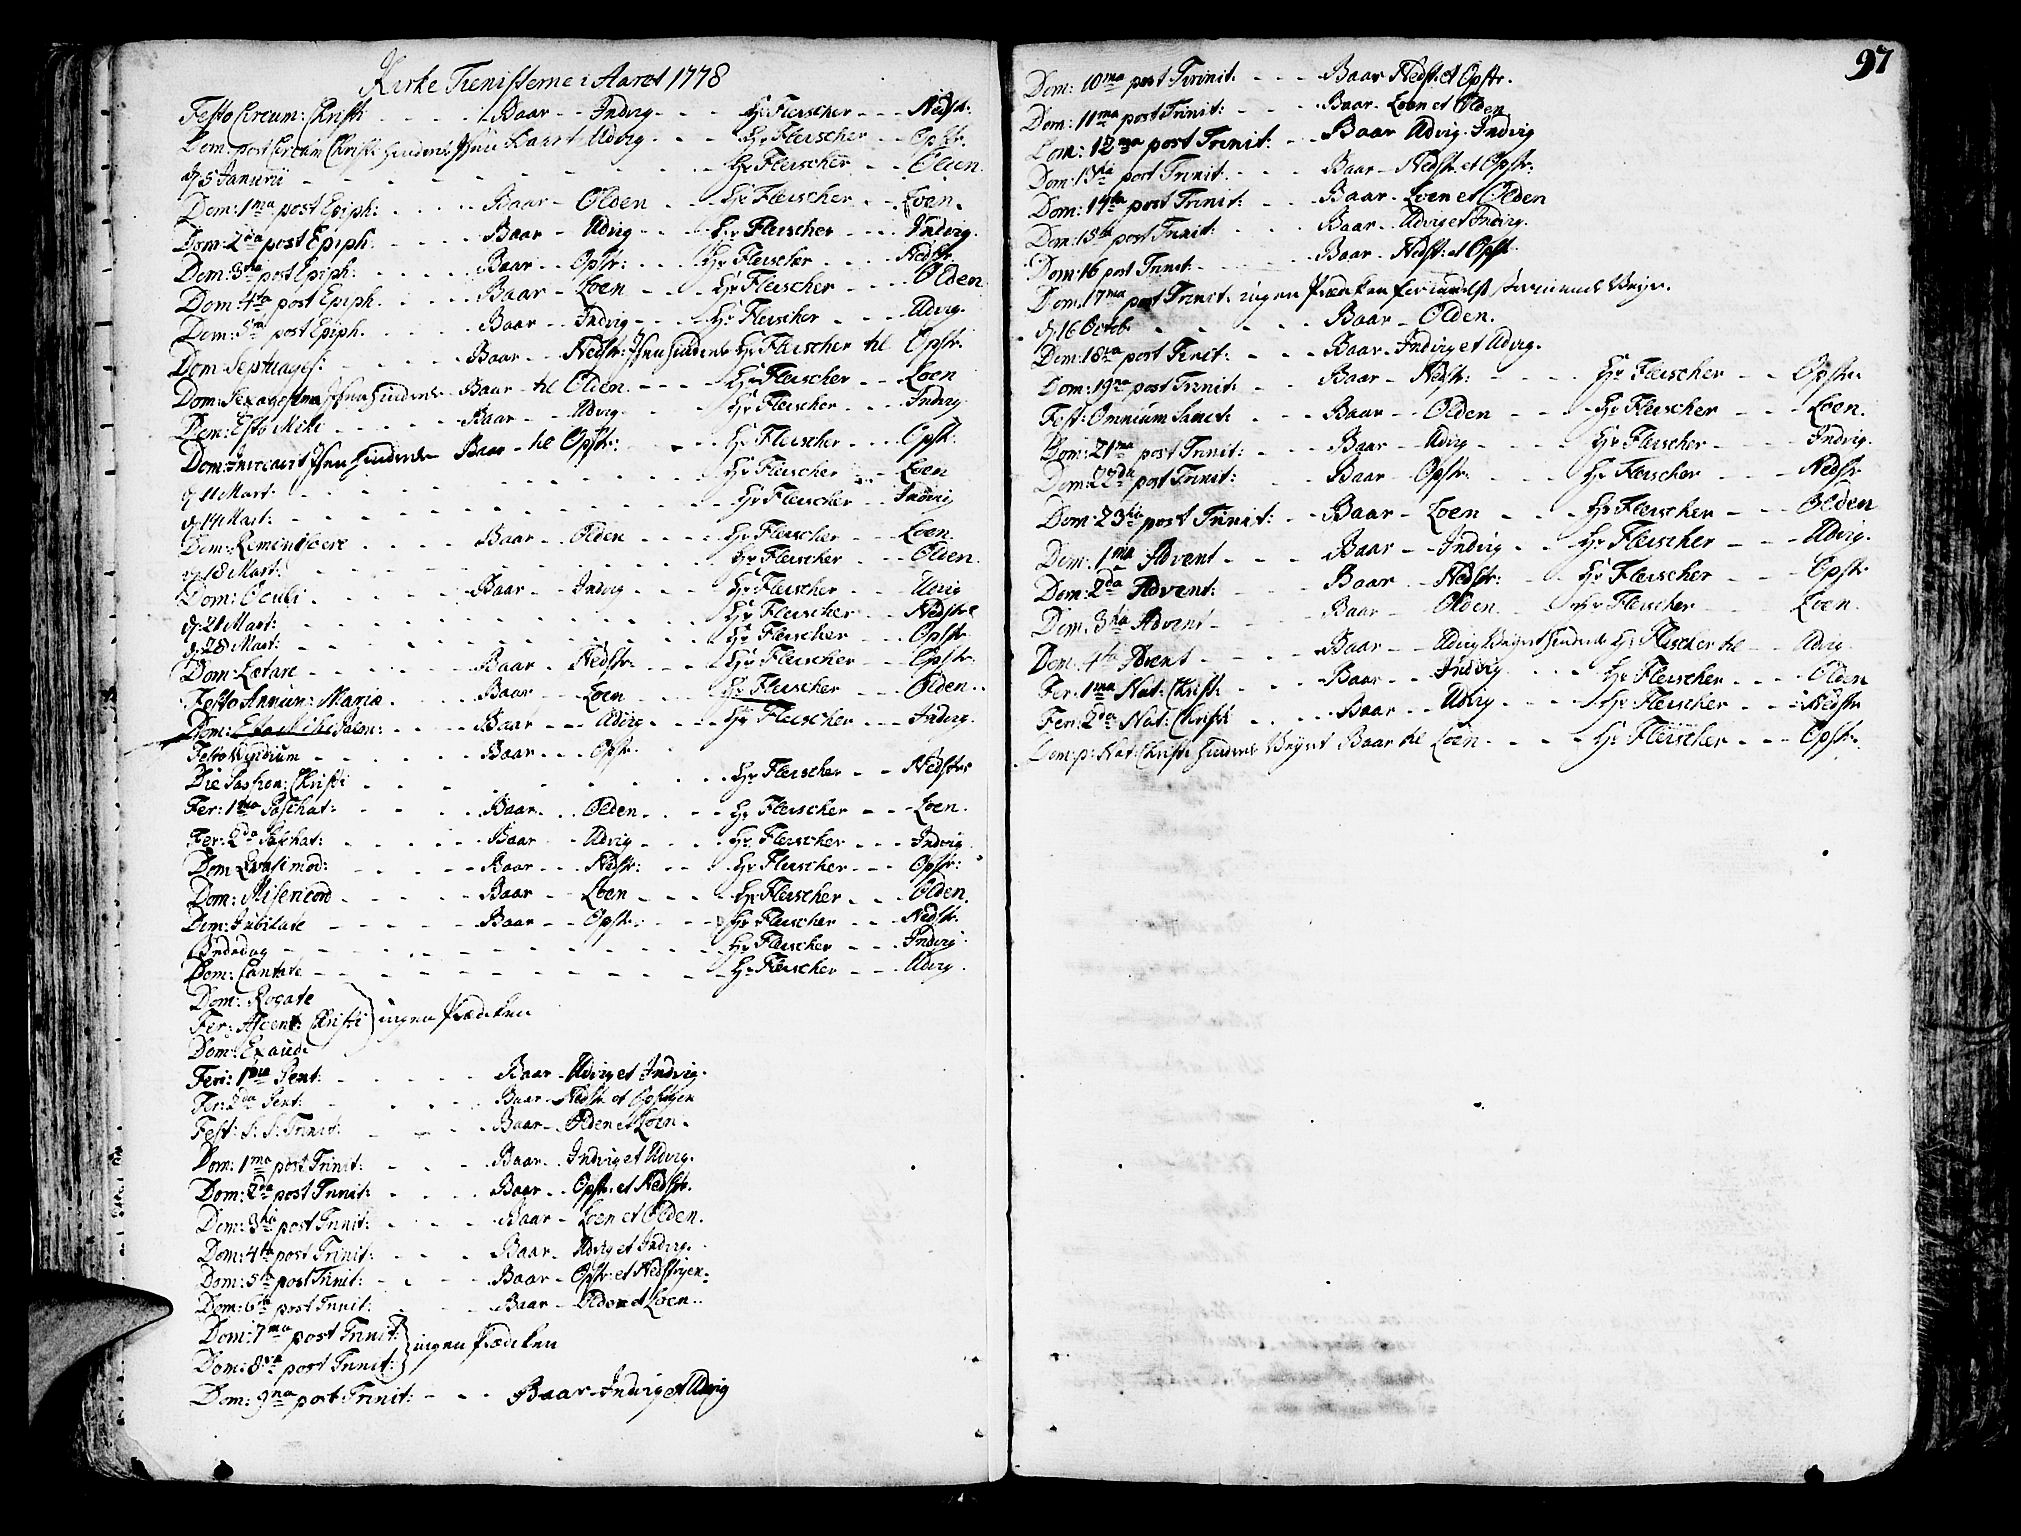 Kirke Tienisterne i Aaret 1778
Festo Circum: Christi - - - - Baar - Indvig - - - Hr Fleischer - - - Nedstr:
Dom: post Circum Christi hindrede Iisen Baar til Udvig - - - Hr Fleischer - - - Opstr.
d 5 Januarii - - - - Hr Fleischer - - Olden.
Dom: 1ma post Epiph: - - - - Baar - Olden - - Hr Fleischer - - - Loen.
Dom: 2da post Epiph. - - - - Baar - Udvig - - - Hr Fleischer - - - Indvig.
Dom: 3tia post Epiph: - - - - Baar - - Opstr: - - - Hr Fleischer - - - Nedstr
Dom: 4ta post Epiph. - - - - Baar - - Loen - - - Hr Fleischer - - - Olden.
Dom: 5ta post Epiph. - - - - Baar - - Indvig - - - Hr Fleischer - - - Udvig.
Dom Septuages: - - - - Baar - - Nedstr: Iisen hindrede Hr Fleischer til Opstr.
Dom: Sexagesima Iisen hindrede Baar - til Olden - - - Hr Fleischer - - - Loen
Dom: Esto Mihi - - - - Baar - - Udvig - - - Hr Fleischer - - - Indvig
Dom: Invocavit Iisen hindrede Baar - til Opstr: - - Hr Fleischer - - - Opstr.
d: 11 Mart: - - - - Hr Fleischer - - Loen
d: 14 Mart: - - - - Hr Fleischer - - Indvig
Dom: Reminiscere - - - - Baar - - Olden - - - Hr Fleischer - - - Loen.
d: 18 Mart: - - - - Hr Fleischer - - - Olden.
Dom: Oculi - - - - Baar - - Indvig - - - Hr Fleischer - - - Udvig
d: 21 Mart: - - - - Hr Fleischer - - - Nedstr
d: 28 Mart: - - - - Hr Fleischer - - - Opstr
Dom: Lætare - - - - Baar - - Nedstr: - - - Hr Fleischer - - - Opstr.
Festo Annun: Mariæ - - - - Baar - - Loen - - - Hr Fleischer - - - Olden.
Dom: Palm: - - - - Baar - - Udvig - - - Hr Fleischer - - - Indvig.
Festo Viridium - - - - Baar - - Opstr
Die Passion: Christi - - - - Hr Fleischer - - Nedstr:
Fer: 1ma Paschat: - - - - Baar - - Olden - - - Hr Fleischer - - - Loen.
Fer: 2da Paschat: - - - - Baar - - Udvig - - - Hr Fleischer - - - Indvig
Dom: Qvasimod: - - - - Baar - - Nedstr: - - - Hr Fleischer - - - Opstr:
Dom: Misericord - - - - Baar - - Loen - - - Hr Fleischer - - - Olden.
Dom: Jubilate - - - - Baar - - Opstr: - - - Hr Fleischer - - - Nedstr.
Bededag - - - - Hr Fleischer - - - Indvig
Dom: Cantate - - - - Hr Fleischer - - - Udvig.
Dom: Rogate
Fer: Ascent: Christi } ingen Prædiken
Dom: Exaudi
Feri: 1ma Pent: - - - - Baar - Udvig et Indvig.
Fer: 2da Pent: - - - - Baar - Nedstr et Opstryen
Fest: S: S: Trinit: - - - - Baar - Olden et Loen.
Dom: 1ma post Trinit: - - - Baar - Indvig et Udvig.
Dom: 2da post Trinit: - - - Baar - Opstr: et Nedstr.
Dom: 3tia post Trinit: - - - Baar - Loen et Olden.
Dom: 4ta post Trinit: - - - Baar - Udvig et Indvig.
Dom: 5ta post Trinit: - - - Baar - Opstr: et Nedstryen
Dom: 6ta post Trinit: - - - Baar - Olden et Loen.
Dom: 7ma post Trinit:
Dom: 8va post Trinit: } ingen Prædiken
Dom: 9na post Trinit: - - - Baar - Indvig et Udvig
97
Dom: 10ma post Trinit: - - - Baar Nedstr: et Opstr.
Dom: 11ma post Trinit: - - - Baar - Loen et Olden
Dom: 12ma post Trinit: - - Baar Udvig - Indvig
Dom: 13tia post Trinit: - - - Baar - Nedstr: et Opstr.
Dom: 14ta post Trinit: - - Baar - Loen et Olden
Dom: 15ta post Trinit: - - - Baar - Udvig et Indvig.
Dom: 16 post Trinit: - - - - Baar - Nedstr: et Opstr.
Dom: 17ma post Trinit: ingen Prædiken formedelst stormende Veyr.
d: 16 Octob: - - - - Baar - Olden.
Dom: 18va post Trinit: - - - Baar - Indvig et Udvig.
Dom: 19na post Trinit: - - - Baar - Nedstr: - - - Hr Fleischer - - Opstr:
Fest: Omnium Sanct: - - Baar - Olden - - - Hr Fleischer - - Loen.
Dom: 21ma post Trinit: - - Baar - Udvig - - - Hr Fleischer - - - Indvig.
Dom: 22da post Trinit: - - Baar - Opstr: - - - Hr Fleischer - - - Nedstr
Dom: 23tia post Trinit: - - Baar - - Loen - - - Hr Fleischer - - - Olden
Dom: 1ma Advent - - - Baar - - Indvig - - Hr Fleischer - - - Udvig.
Dom: 2da Advent: - - - Baar - - Nedstr: - - Hr Fleischer - - - Opstr
Dom: 3tia Advent - - - Baar - - Olden - - - Hr Fleischer - - - Loen.
Dom: 4ta Advent - - - Baar - - Udvig Veyret hindrede Hr Fleischer til - - Udvig.
Fer: 1ma Nat: Christi - - - Baar - - Indvig - - - Hr Fleischer - - - Olden
Fer: 2da Nat: Christi - - - Baar - - Udvig - - - Hr Fleischer - - - Nedstr
Dom: p: Nat: Christi hindrede Veyret Baar til Loen - - - Hr Fleischer - - - Opstr.